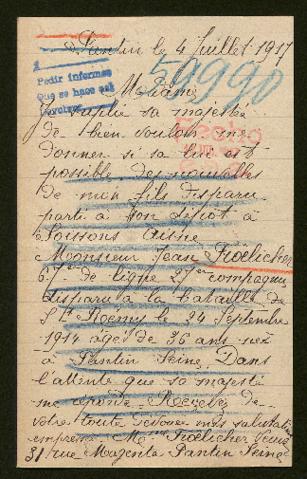 Pantin le 4 Juillet 1917
Pedir informes
que se hace así
59990
Madame
Je suplie sa majesté
de bien vouloir me
donner si sa lui est
possible des nouvelles
de mon fils disparu
parti à son dépot à
Soissons Aisne
Monsieur Jean Froelicher
67e de ligne 27em compagnie
disparu à la bataille de
St Remy le 24 Septembre
1914 âgé de 36 ans né
à Pantin Seine Dans
l'attente que sa majesté
me réponde Recevez de
votre toute dévouée mes salutations
empressé Me Froelicher Veuve
31 rue Magenta Pantin Seine